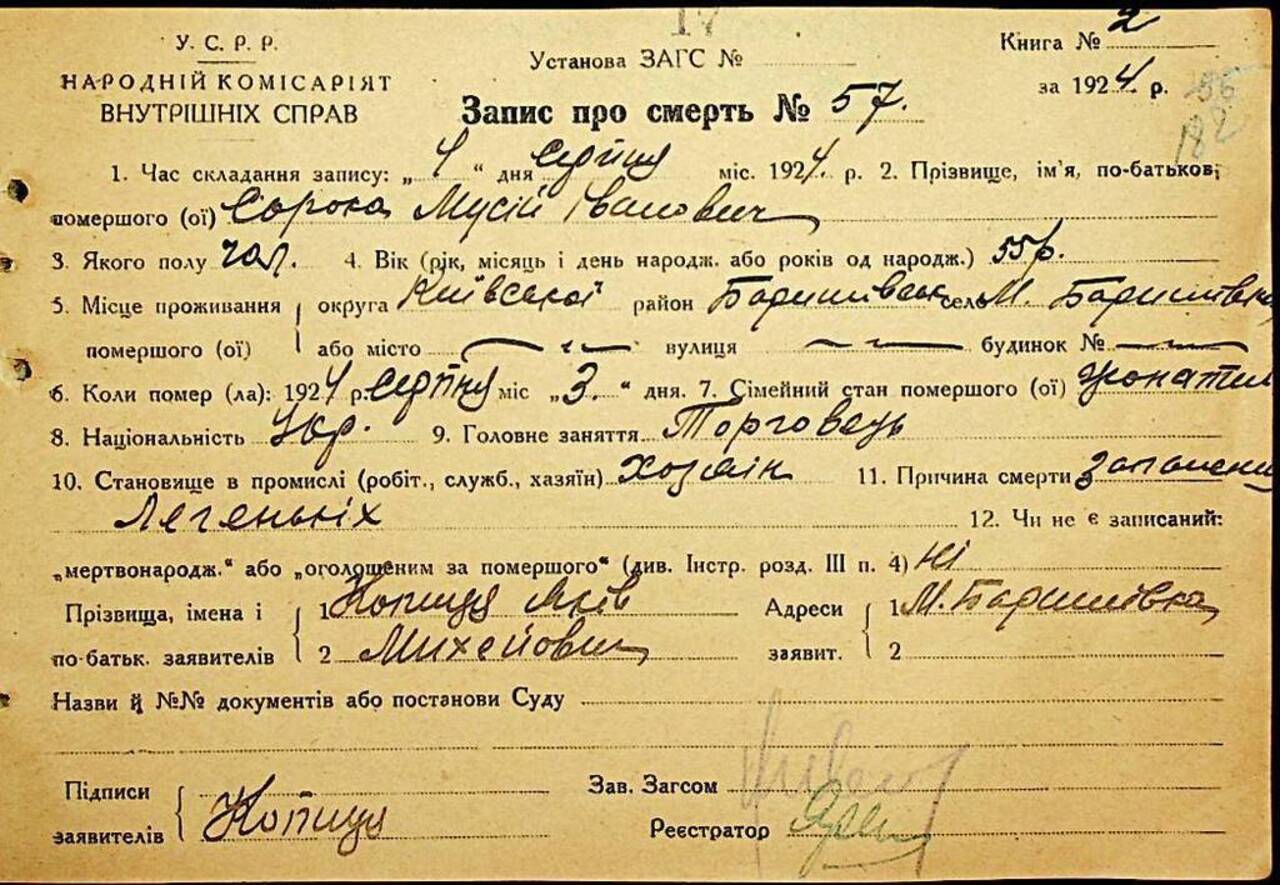 17
У. С. Р. Р.
НАРОДНІЙ КОМІСАРІЯТ
ВНУТРІШНІХ СПРАВ
Установа ЗАГС №
Книга № 2
за 1924 р.
182
Запис про смерть № 57.
1. Час складання запису: „4“ дня серпня міс. 1924. р. 2. Прізвище, ім'я, по-батькові
помершого (ої) Сорока Мусій Іванович
3. Якого полу чол. 4. Вік (рік, місяць і день народж. або років од народж.) 55 р.
5. Місце проживання помершого (ої) { округа Київської район Баришівськ село М. Баришівка
або місто вулиця будинок №
6. Коли помер (ла): 1924 р. серпня міс „3.“ дня. 7. Сімейний стан помершого (ої) жонатий
8. Національність Укр. 9. Головне заняття Торговець
10. Становище в промислі (робіт., служб., хазяїн) хозяін 11. Причина смерти запалени
Легеньніх 12. Чи не є записаний:
„мертвонародж.“ або „оголошеним за помершого“ (див. Інстр. розд. III п. 4) Ні
Прізвища, імена і по-батьк. заявителів { 1 Копиця Яків Адреси заявит. { 1 М. Баришівка
2 Михейович 2
Назви й №№ документів або постанови Суду
Підписи заявителів { Копиця
Зав. Загсом
Реєстратор